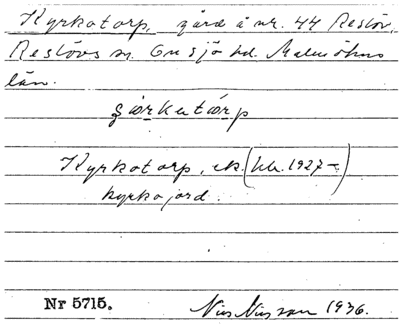 Kyrkotorp, gård å nr. 44 Reslöv,
Reslövs sn. Onsjö hd. Malmöhus
län.
Kyrkotorp, ek. (hh. 1927–)
kyrkojord.
Nr 5715.
Nils Nilsson 1936.